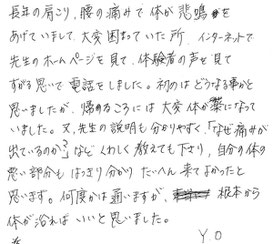 長年の肩こり、腰の痛みで体が悲鳴を
あげていまして、大変困まっていた所、インターネットで
先生のホームページを見て、体験者の声を見て
すがる思いで電話をしました。初めはどうなる事かと
思いましたが、帰めるころには大変体が楽になって
いました。又、先生の説明も分かりやすく、「なぜ痛みが
出ているのか?」などくわしく教えても下さり、自分の体の
悪い部分もはっきり分かりたいへん来てよかったと
思います。何度かは通いますが、根本から
体が治ればいいと思いました。
Y O